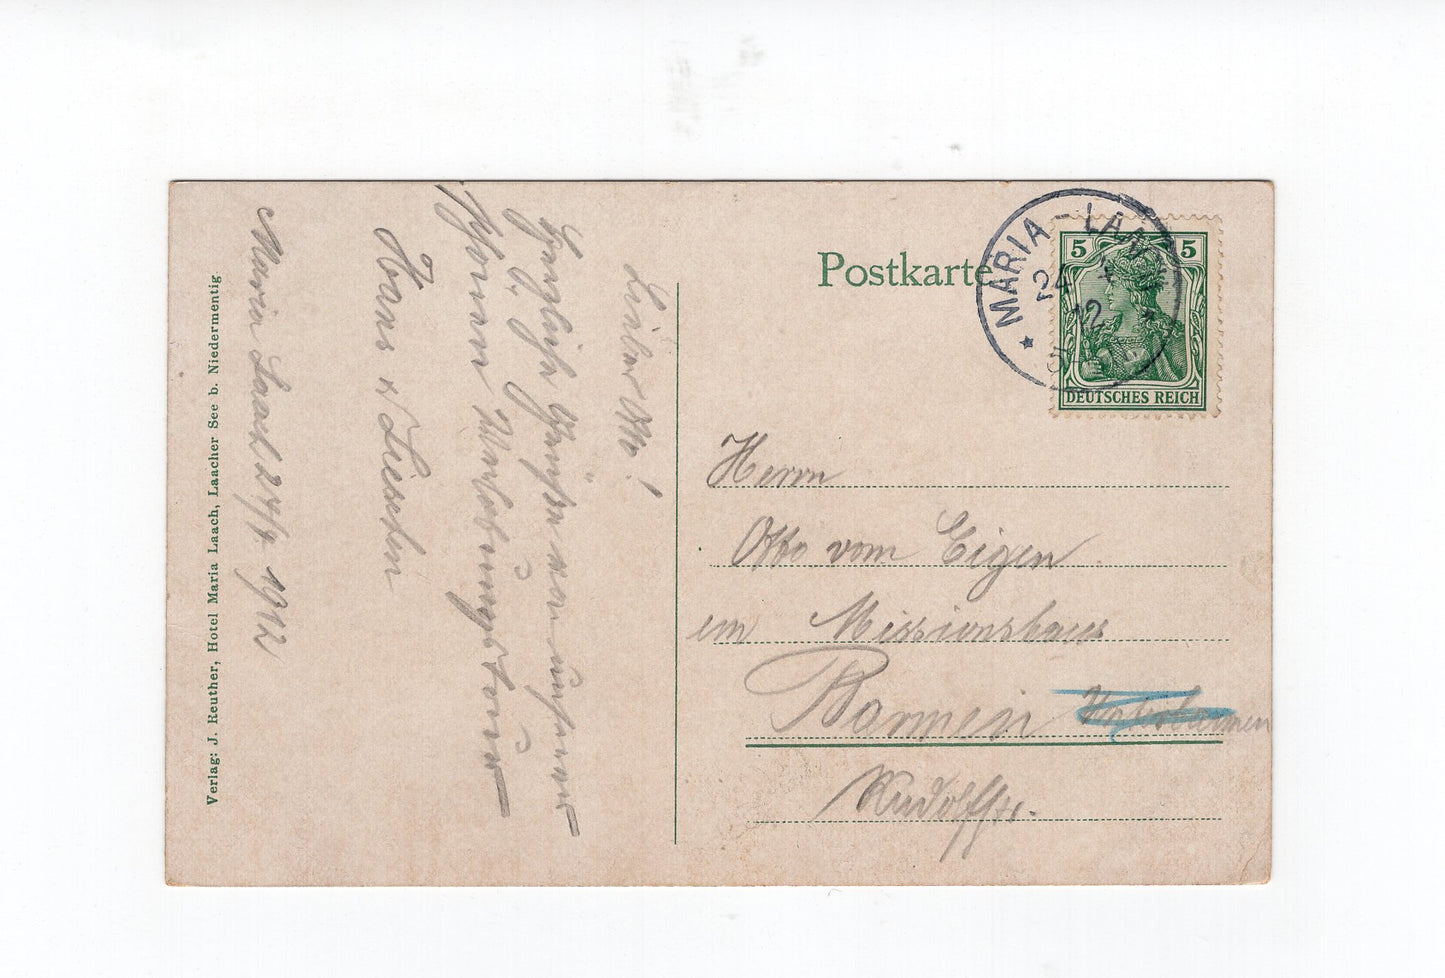 Postkarte
MARIA-LAACH
24
12
5
5 5
DEUTSCHES REICH
Herrn
Otto vom Eigen
im Missionshaus
Barmen
Rudolfstr.
Lieber Otto!
Herzliche Grüße von unserer
schönen Wanderung
Hans u. Lieschen
Maria Laach 24/4 1912
Verlag: J. Reuther, Hotel Maria Laach, Laacher See b. Niedermentig